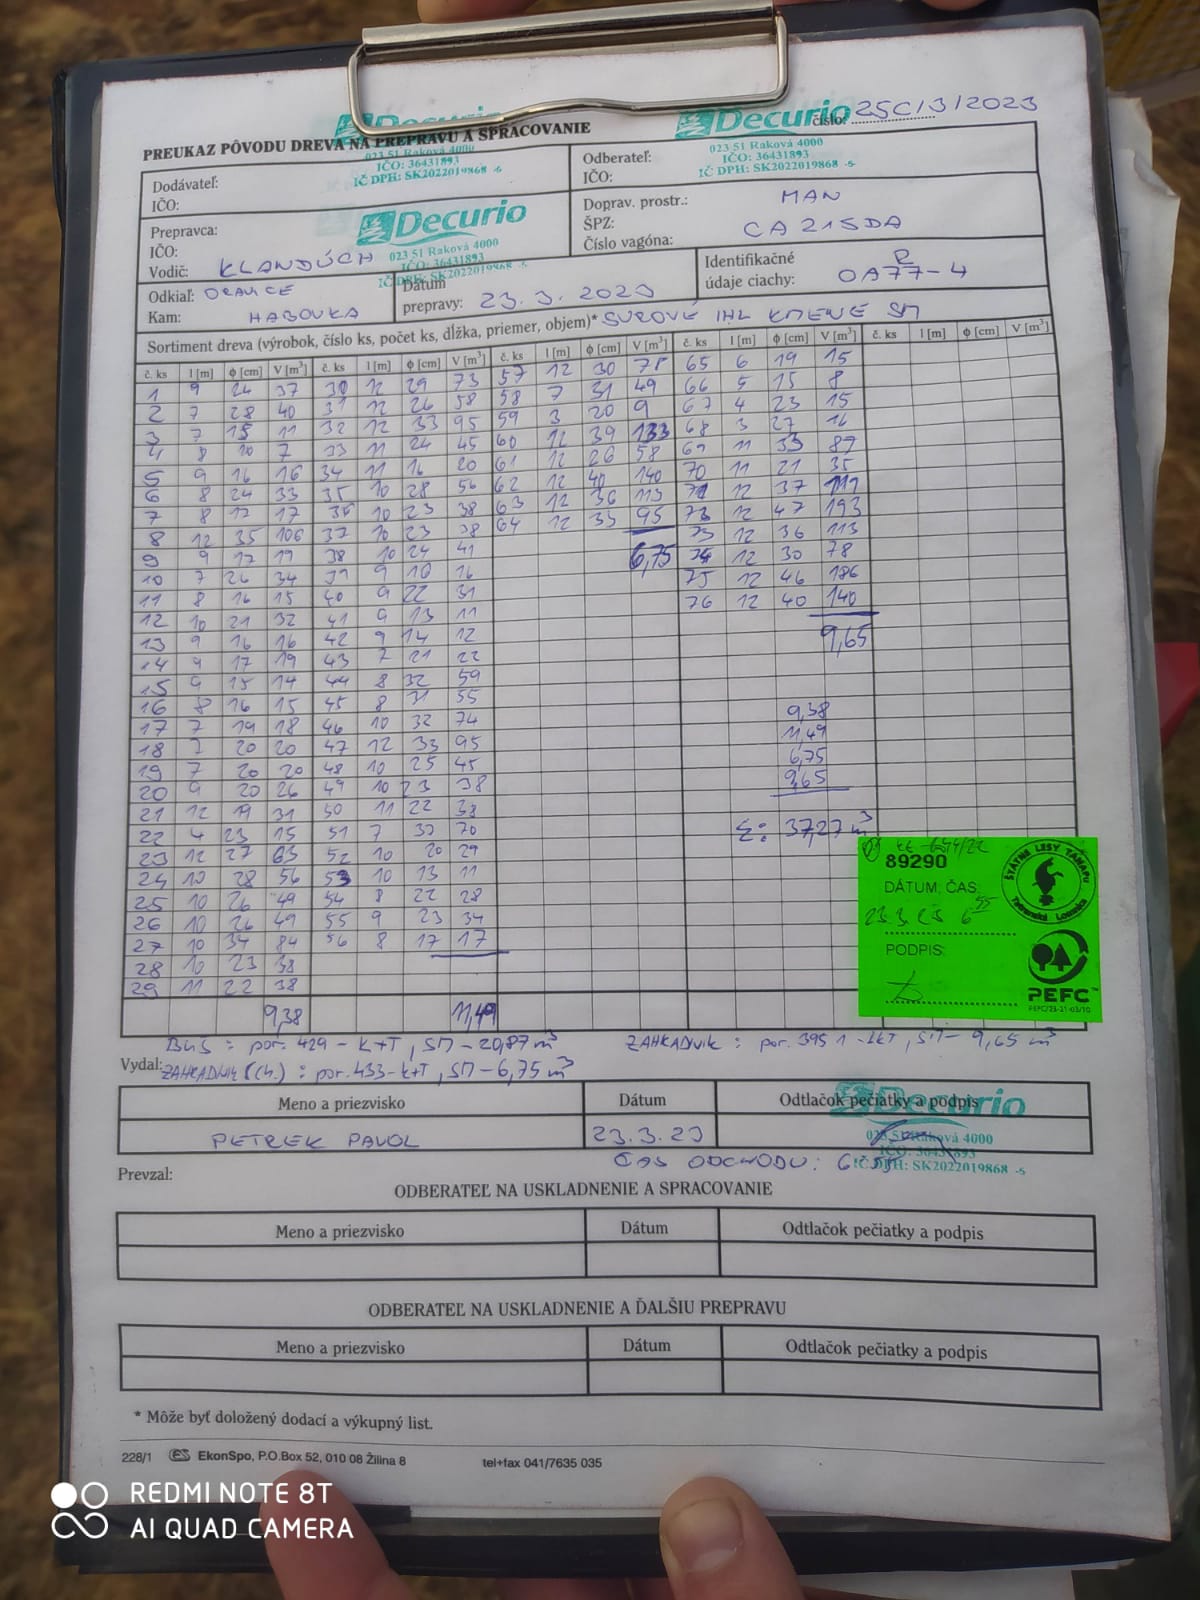 Decurio
Decurio
číslo: 25C/3/2023
PREUKAZ PÔVODU DREVA NA PREPRAVU A SPRACOVANIE
023 51 Raková 4000
IČO: 36431893
IČ DPH: SK2022019868 -5
023 51 Raková 4000
IČO: 36431893
IČ DPH: SK2022019868 -5
Dodávateľ:
IČO:
Odberateľ:
IČO:
Prepravca:
IČO:
Vodič: KLANDÚCH
Decurio
023 51 Raková 4000
IČO: 36431893
IČ DPH: SK2022019868 -5
Doprav. prostr.: MAN
ŠPZ: CA 215DA
Číslo vagóna:
Odkiaľ: ORAVICE
Kam: HABOVKA
Dátum
prepravy: 23. 3. 2023
Identifikačné R
údaje ciachy: OA77-4
Sortiment dreva (výrobok, číslo ks, počet ks, dĺžka, priemer, objem)* SUROVÉ IHL KMENE SM
č. ks l [m] ϕ [cm] V [m³] č. ks l [m] ϕ [cm] V [m³] č. ks l [m] ϕ [cm] V [m³] č. ks l [m] ϕ [cm] V [m³] č. ks l [m] ϕ [cm] V [m³]
1 9 24 37 30 12 29 73 57 12 30 78 65 6 19 15
2 7 28 40 31 12 26 58 58 7 31 49 66 5 15 8
3 7 15 11 32 12 33 95 59 3 20 9 67 4 23 15
4 8 10 7 33 11 24 45 60 12 39 133 68 3 27 16
5 9 16 16 34 11 16 20 61 12 26 58 69 11 33 87
6 8 24 33 35 10 28 56 62 12 40 140 70 11 21 35
7 8 17 17 36 10 23 38 63 12 36 113 71 12 37 119
8 12 35 106 37 10 23 38 64 12 33 95 72 12 47 193
9 9 17 19 38 10 24 41 6,75 73 12 36 113
10 7 26 34 39 9 16 16 74 12 30 78
11 8 16 15 40 9 22 31 75 12 46 186
12 10 21 32 41 9 13 11 76 12 40 140
13 9 16 16 42 9 14 12 9,65
14 9 17 19 43 7 21 22
15 9 15 14 44 8 32 59
16 8 16 15 45 8 31 55 9,38
17 7 19 18 46 10 32 74 11,49
18 7 20 20 47 12 33 95 6,75
19 7 20 20 48 10 25 45 9,65
20 9 20 26 49 10 23 38
21 12 19 31 50 11 22 38
22 4 23 15 51 7 37 70 Σ: 37,27 m³
23 12 27 63 52 10 20 29
24 10 28 56 53 10 13 11
25 10 26 49 54 8 22 28
26 10 26 49 55 9 23 34
27 10 34 84 56 8 17 17
28 10 23 38
29 11 22 38
9,38 11,49
89290
DÁTUM, ČAS
23 3 23 6 55
PODPIS
ŠTÁTNE LESY TANAPu
Tatranská Lomnica
PEFC™
PEFC/23-21-03/10
por. 429 - k+T, SM - 20,87 m³
ZAHRADNIK : por. 395 1 - LKT, SM - 9,65 m³
Vydal: ZAHRADNIK (ch.) : por. 433 - k+T, SM - 6,75 m³
Meno a priezvisko Dátum Odtlačok pečiatky a podpis
Decurio
PETREK PAVOL 23.3.23
023 51 Raková 4000
IČO: 36431893
IČ DPH: SK2022019868 -5
ČAS ODCHODU: 6:55
Prevzal:
ODBERATEĽ NA USKLADNENIE A SPRACOVANIE
Meno a priezvisko Dátum Odtlačok pečiatky a podpis
ODBERATEĽ NA USKLADNENIE A ĎALŠIU PREPRAVU
Meno a priezvisko Dátum Odtlačok pečiatky a podpis
* Môže byť doložený dodací a výkupný list.
228/1 ES EkonSpo, P.O.Box 52, 010 08 Žilina 8 tel+fax 041/7635 035
REDMI NOTE 8T
AI QUAD CAMERA